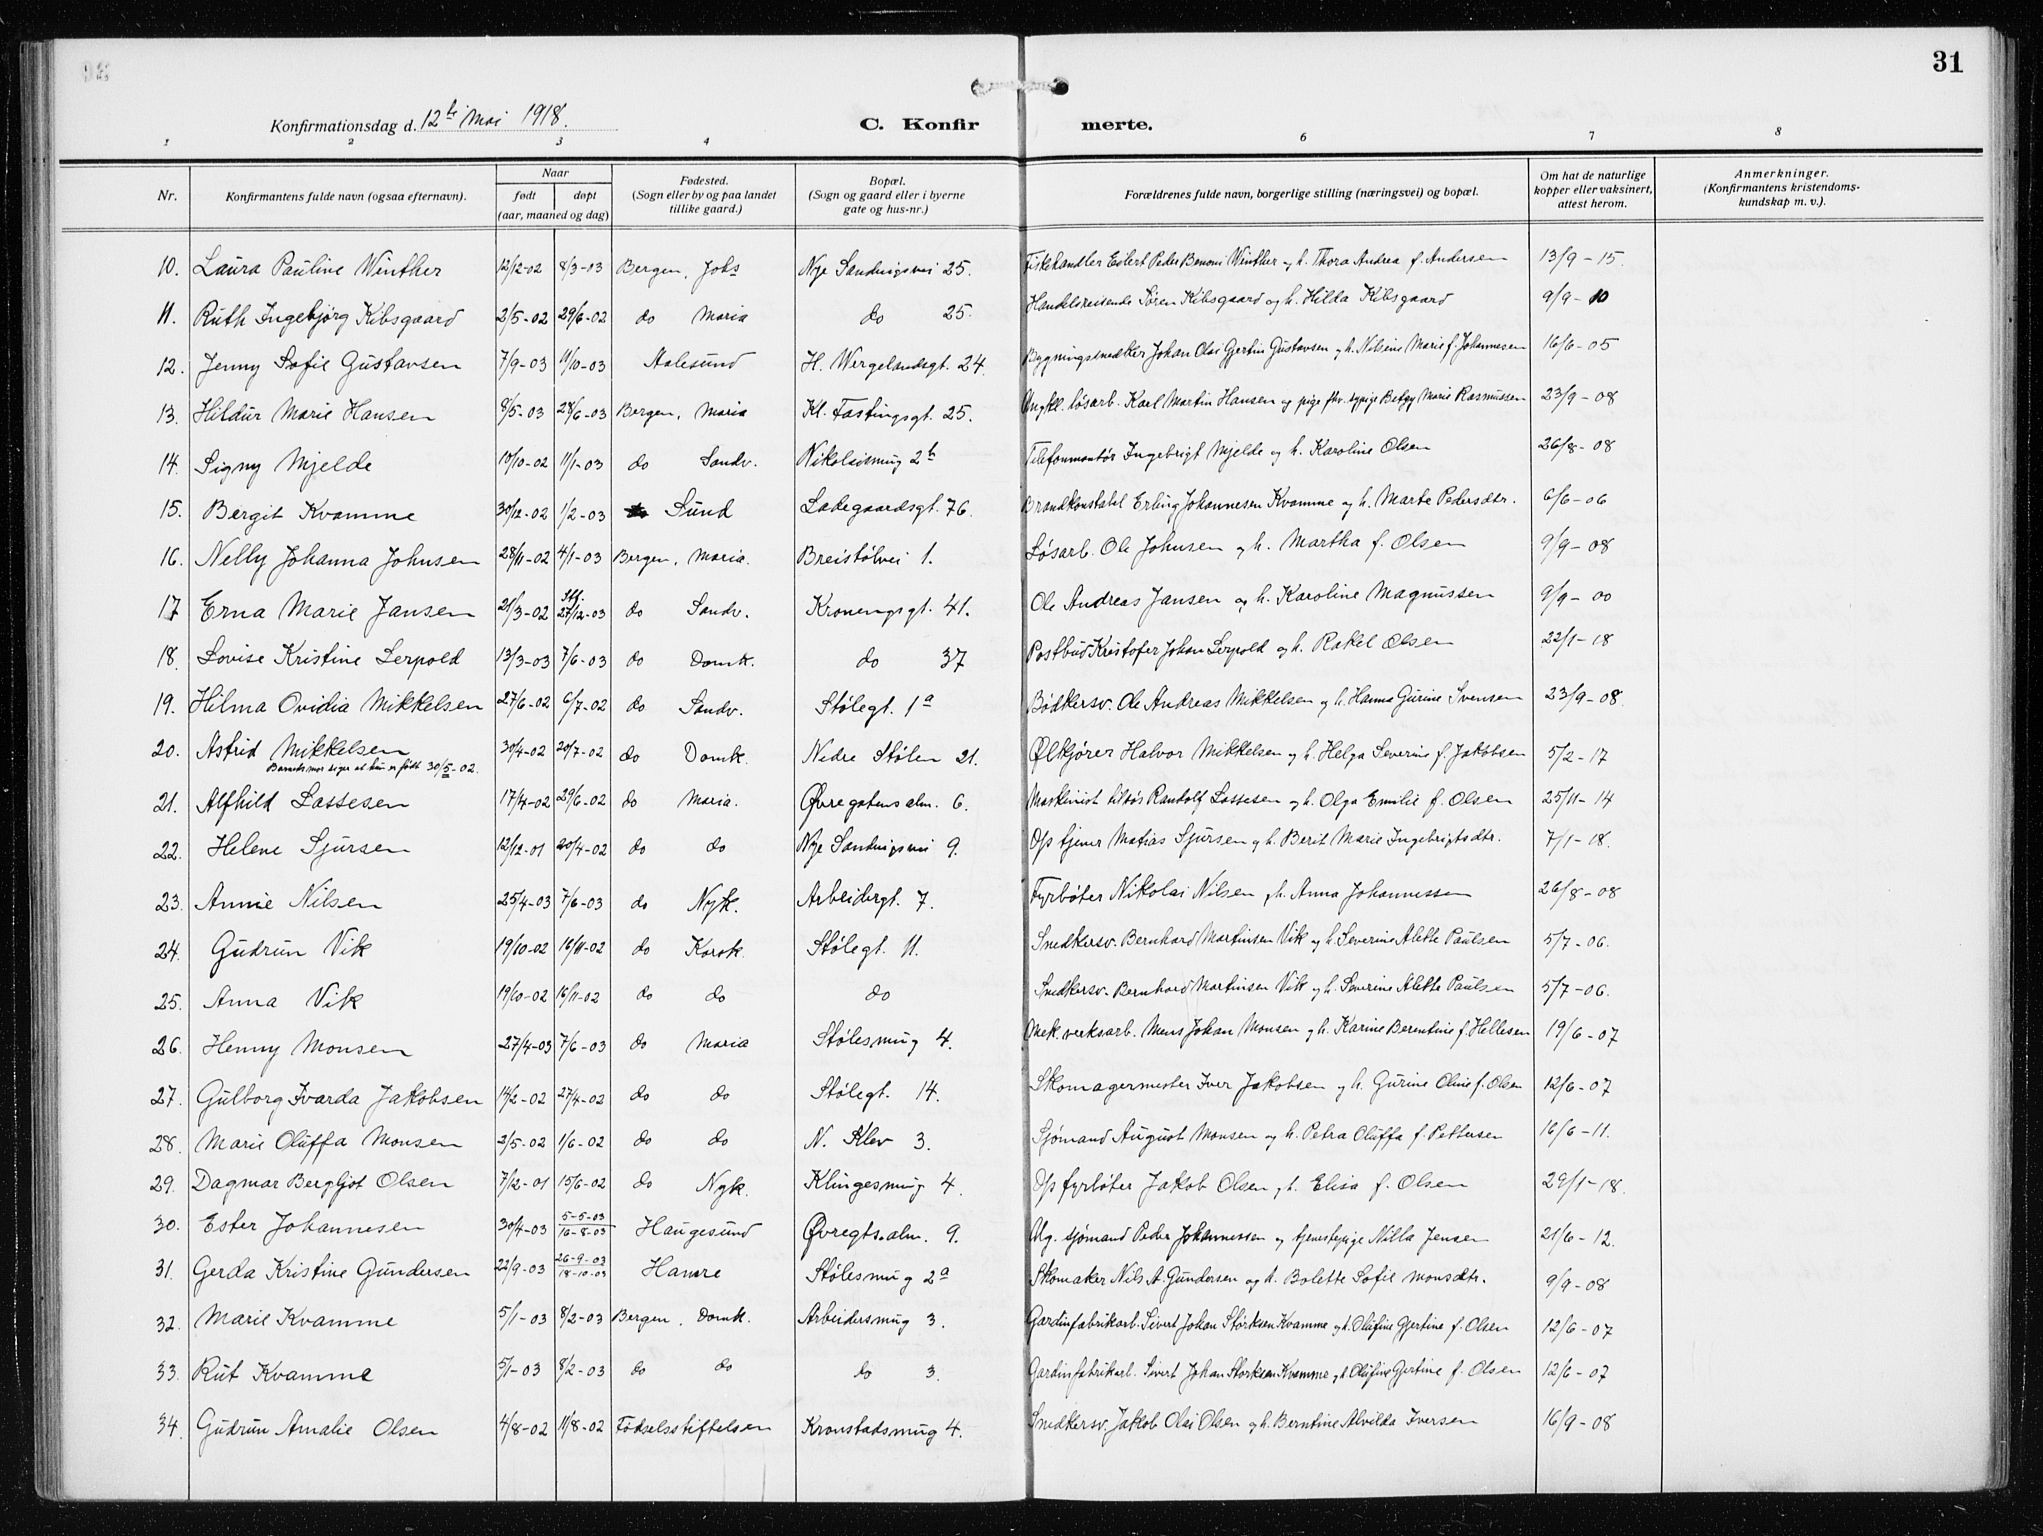 31
Konfirmationsdag d. 12te Mai 1918.
C. Konfir merte.
1 2 3 4 6 7 8
Nr. Konfirmantens fulde navn (ogsaa efternavn). Naar født døpt (aar, maaned og dag) Fødested. (Sogn eller by og paa landet tillike gaard.) Bopæl. (Sogn og gaard eller i byerne gate og hus-nr.) Forældrenes fulde navn, borgerlige stilling (næringsvei) og bopæl. Om hat de naturlige kopper eller vaksinert, attest herom. Anmerkninger. (Konfirmantens kristendoms-kundskap m. v.).
10. Laura Pauline Winther 12/12-02 8/3-03 Bergen, Johs Nye Sandvigsvei 25. Fiskehandler Eilert Peder Benoni Winther og h. Thora Andrea f. Andersen 13/9-15.
11. Ruth Ingebjørg Kibsgaard 2/5-02 29/6-02 do Maria do 25. Handelsreisende Søren Kibsgaard og h. Hilda Kibsgaard 9/9-10
12. Jenny Sofie Gustavsen 7/9-03 11/10-03 Aalesund H. Wergelandsgt. 24. Bygningssnedker Johan Olai Gjertin Gustavsen og h. Nilsine Marie f. Johannesen 16/6-05
13. Hildur Marie Hansen 8/5-03 28/6-03 Bergen, Maria Kl. Fastingsgt. 25. Ungkl. løsarb. Karl Martin Hansen og pige fhv. sypige Betzy Marie Rasmussen 23/9-08
14. Signy Mjelde 10/10-02 11/1-03 do Sandv. Nikolaismug 2b Telefonmontør Ingebrigt Mjelde og h. Karoline Olsen 26/8-08
15. Bergit Kvamme 30/12-02 1/2-03 Sund Ladegaardsgt. 76. Brandkonstabel Erling Johannesen Kvamme og h. Marte Pedersdtr. 6/6-06
16. Nelly Johanna Johnsen 28/11-02 4/1-03 Bergen, Maria. Breistølvei 1. Løsarb. Ole Johnsen og h. Martha f. Olsen 9/9-08
17 Erna Marie Jansen 21/3-02 Stf. 27/12-03 do Sandv. Kronengsgt. 41. Ole Andreas Jansen og h. Karoline Magnussen 9/9-00
18. Lovise Kristine Lerpold 13/3-03 7/6-03 do Domk. do 37 Postbud Kristofer Johan Lerpold og h. Rakel Olsen 22/1-18
19. Hilma Ovidia Mikkelsen 27/6-02 6/7-02 do Sandv. Stølegt. 1a Bødkersv. Ole Andreas Mikkelsen og h. Hanna Gurine Svensen 23/9-08.
20. Astrid Mikkelsen 30/4-02 20/7-02 do Domk. Nedre Stølen 21. Ølkjører Halvor Mikkelsen og h. Helga Severine f. Jakobsen 5/2-17
Barnets mor siger at hun er født 30/5-02.
21. Alfhild Lassesen 17/4-02 29/6-02 do Maria. Øvregatens alm. 6. Maskinist tilsjøs Randolf Lassesen og h. Olga Emilie f. Olsen 25/11-14
22. Helene Sjursen 12/12-01 20/4-02 do do Nye Sandvigsvei 9. Op tjener Matias Sjursen og h. Berit Marie Ingebrigtsdtr. 7/1-18.
23. Annie Nilsen 25/4-03 7/6-03 do Nyk. Arbeidergt. 7. Fyrbøter Nikolai Nilsen og h. Anna Johannessen 26/8-08
24. Gudrun Vik 19/10-02 16/11-02 do Korsk. Stølegt. 11. Snedkersv. Bernhard Martinsen Vik og h. Severine Alette Paulsen 5/7-06.
25. Anna Vik 19/10-02 16/11-02 do do do Snedkersv. Bernhard Martinsen Vik og h. Severine Alette Paulsen 5/7-06.
26. Henny Monsen 27/4-03 7/6-03 do Maria Stølesmug 4. Mek. verksarb. Mens Johan Monsen og h. Karine Berentine f. Hellesen 19/6-07
27. Gulborg Ivarda Jakobsen 14/2-02 27/4-02 do do Stølegt. 14. Skomagermester Iver Jakobsen og h. Gurine Oline f. Olsen 12/6-07
28. Marie Oluffa Monsen 2/5-02 1/6-02 do do N. Klev 3. Sjømand August Monsen og h. Petra Oluffa f. Pettersen 16/6-11.
29. Dagmar Bergljot Olsen 7/12-01 15/6-02 do Nyk. Klingesmug 4. Op fyrbøter Jakob Olsen og h. Elisa f. Olsen 29/1-18.
30. Ester Johannesen 30/4-03 5-5-03 16-8-03 Haugesund Øvregts. alm. 9. Ug. sjømand Peder Johannessen og tjenestepige Milla Jensen 21/6-12.
31. Gerda Kristine Gundersen 22/9-03 26-9-03 18-10-03 Hamre Stølesmug 2a Skomaker Nils A. Gundersen og h. Bolette Sofie Monsdtr. 9/9-08
32. Marie Kvamme 5/1-03 8/2-03 Bergen, Domk. Arbeidersmug 3. Gardinfabrikarb. Sivert Johan Størksen Kvamme og h. Olufine Gjertine f. Olsen 12/6-07
33. Rut Kvamme 5/1-03 8/2-03 do do do 3. Gardinfabrikarb. Sivert Johan Størksen Kvamme og h. Olufine Gjertine f. Olsen 12/6-07
34. Gudrun Amalie Olsen 4/8-02 11/8-02 Fødselsstiftelsen Kronstadsmug 4. Snedkersv. Jakob Olai Olsen og h. Berntine Alvilda Iversen 16/9-08